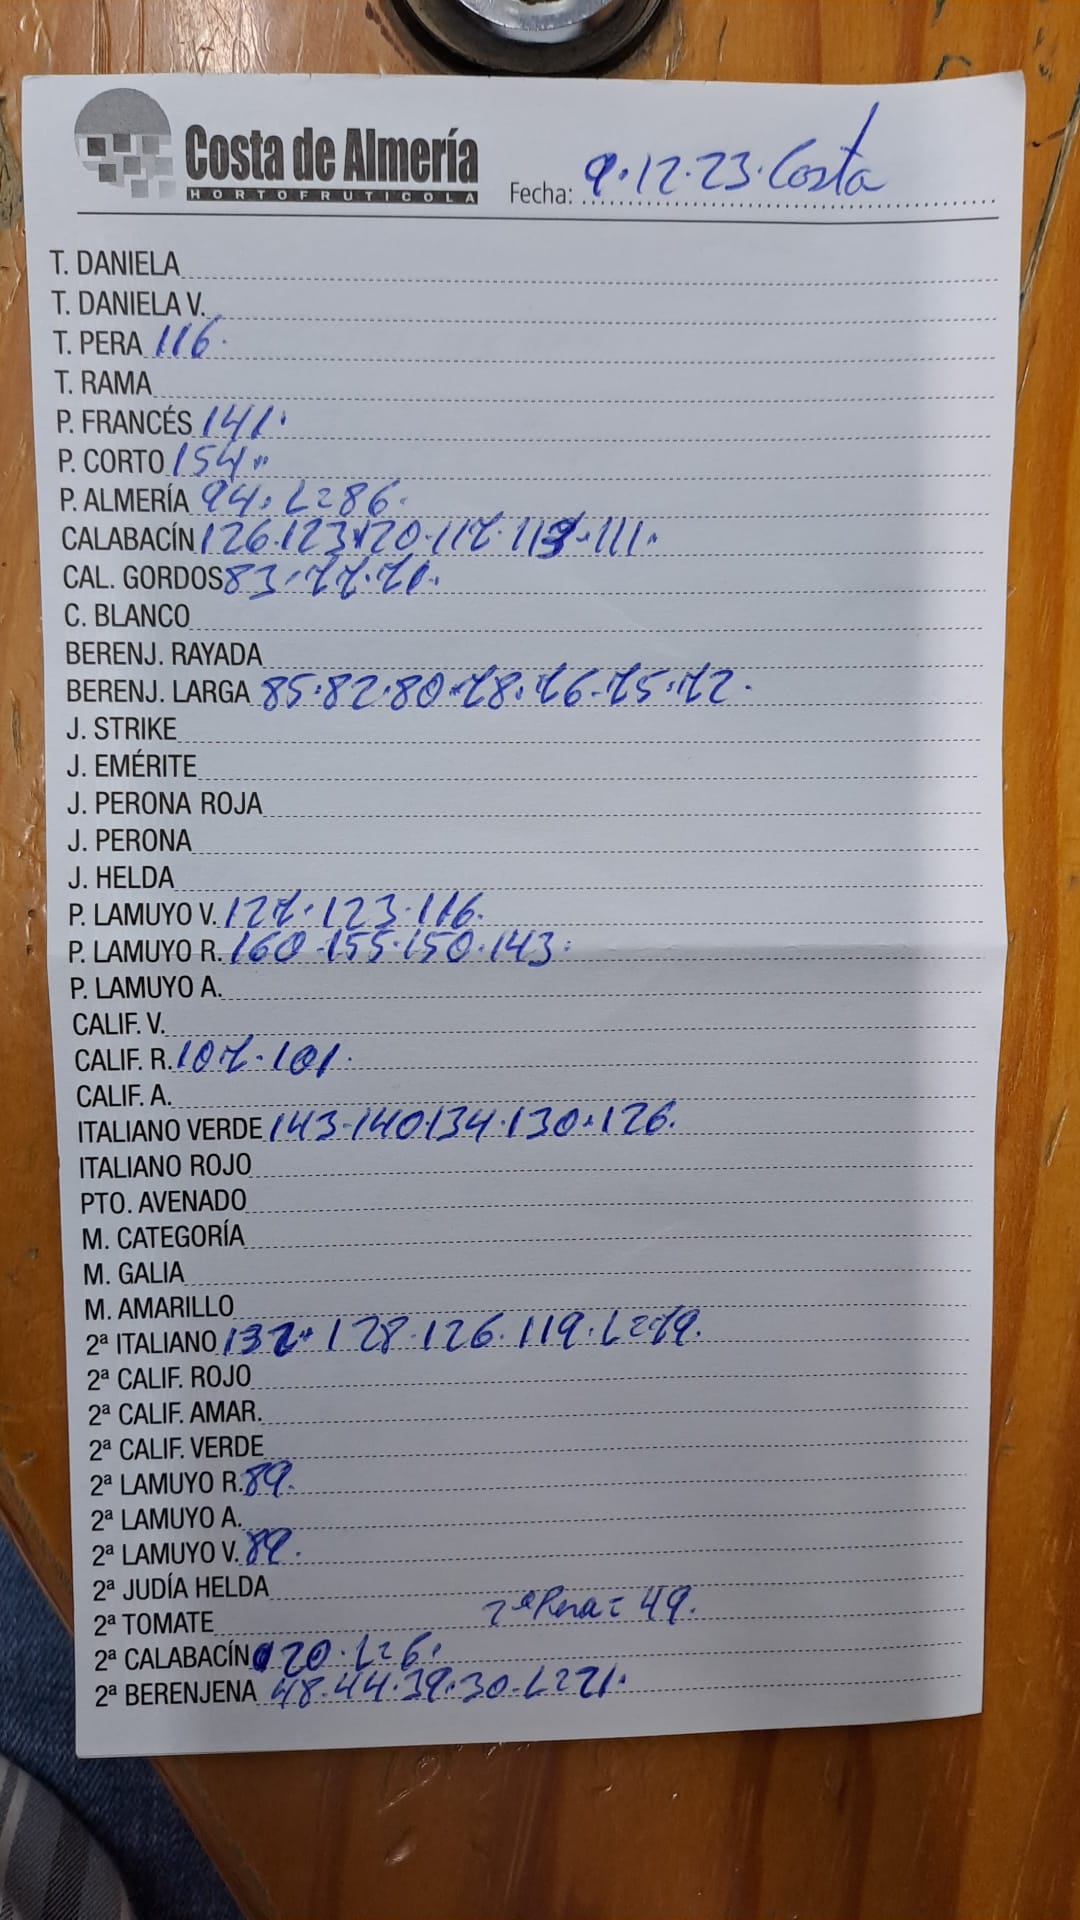 Costa de Almería
HORTOFRUTICOLA
Fecha: 9.12.23. Costa
T. DANIELA
T. DANIELA V.
T. PERA 116.
T. RAMA
P. FRANCÉS 141.
P. CORTO 154.
P. ALMERÍA 94. L=86.
CALABACÍN 126.123.120.117.113.111.
CAL. GORDOS 83.77.71.
C. BLANCO
BERENJ. RAYADA
BERENJ. LARGA 85.82.80.78.76.75.72.
J. STRIKE
J. EMÉRITE
J. PERONA ROJA
J. PERONA
J. HELDA
P. LAMUYO V. 127.123.116.
P. LAMUYO R. 160.155.150.143.
P. LAMUYO A.
CALIF. V.
CALIF. R. 107.101.
CALIF. A.
ITALIANO VERDE 143.140.134.130.126.
ITALIANO ROJO
PTO. AVENADO
M. CATEGORÍA
M. GALIA
M. AMARILLO
2ª ITALIANO 132.128.126.119.L=79.
2ª CALIF. ROJO
2ª CALIF. AMAR.
2ª CALIF. VERDE
2ª LAMUYO R. 89.
2ª LAMUYO A.
2ª LAMUYO V. 89.
2ª JUDÍA HELDA
2ª TOMATE 2ª Pera = 49.
2ª CALABACÍN 20. L=6.
2ª BERENJENA 48.44.39.30.L=21.